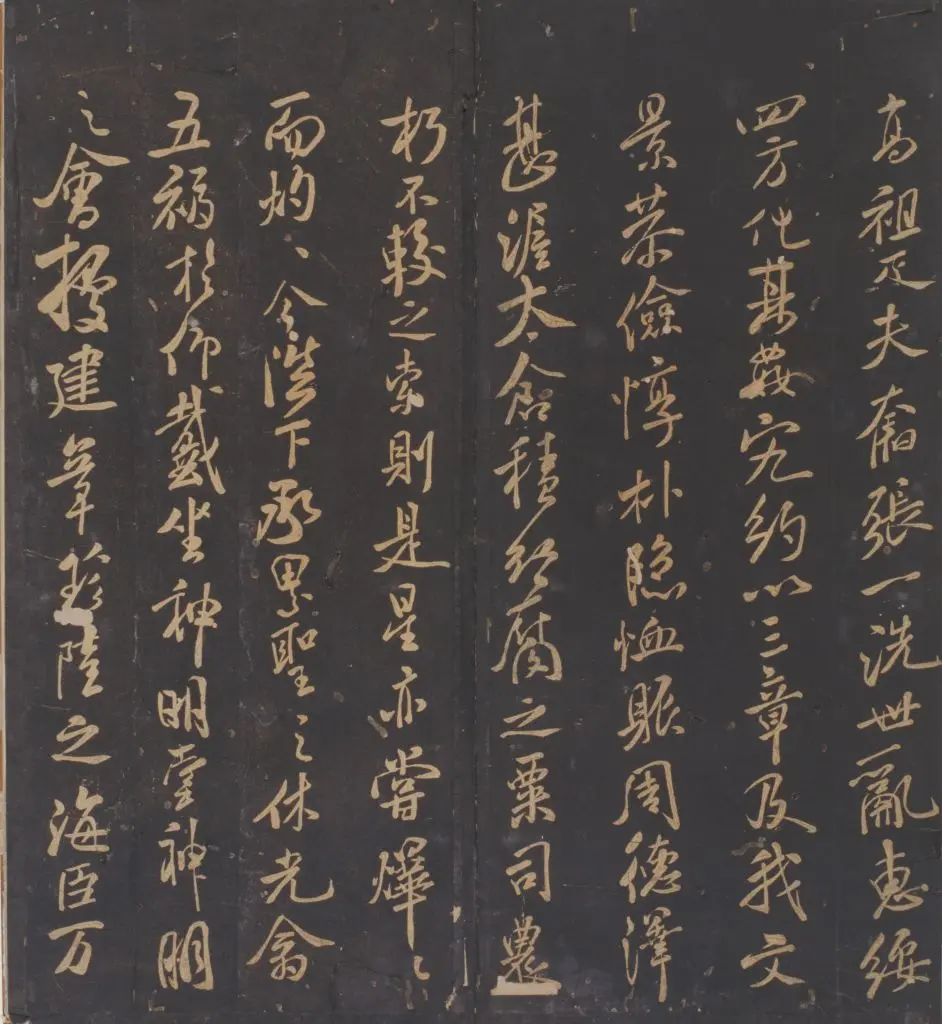 高祖足夫奮張一洗世亂惠綏
四方化其姦宄約以三章及我文
景恭儉惇朴隱恤賑周德澤
甚渥太倉積紅腐之粟司農
朽不較之索則是星亦嘗燁〻
而灼〻今陛下承累聖之休光翕
五福於仰戴坐神明臺神明
之會揆建章輦陸之海臣万